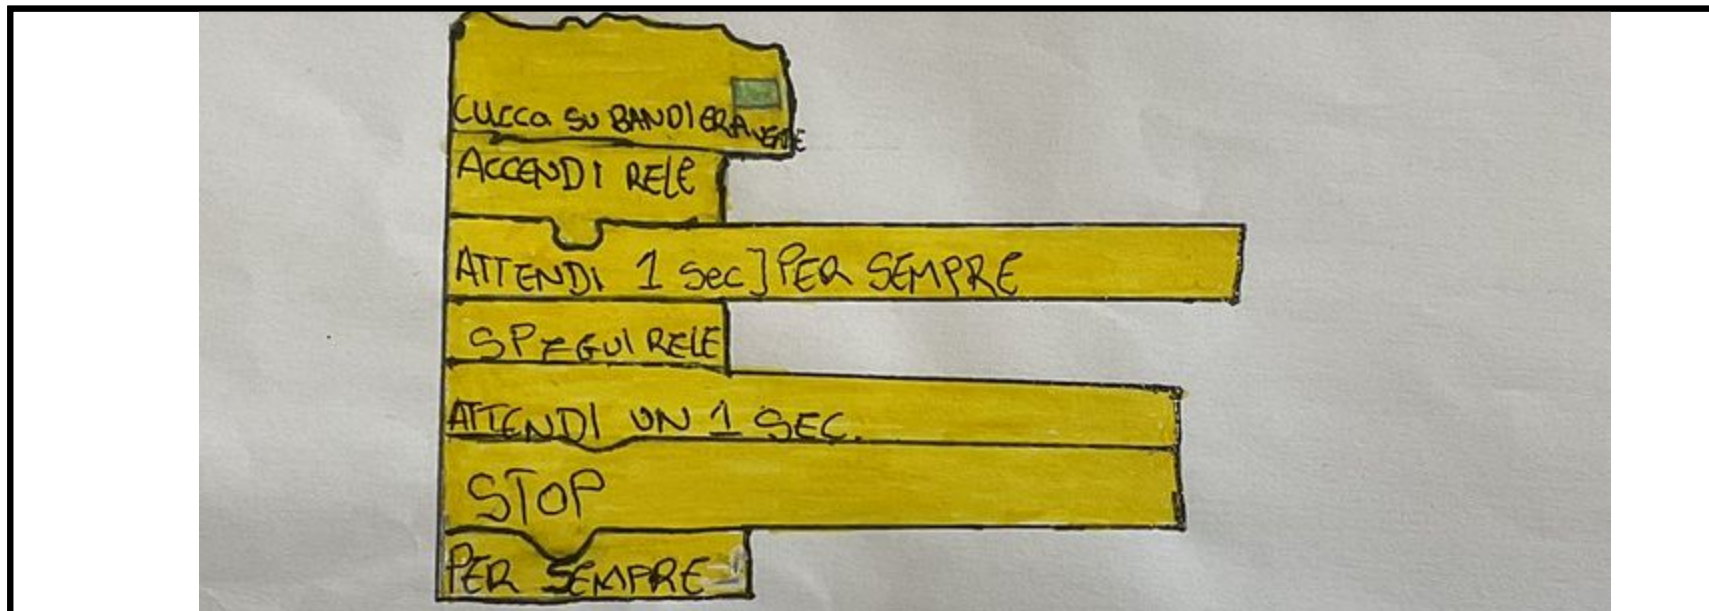 CLICCa SU BANDIERA VERDE
ACCENDI RELE
ATTENDI 1 Sec] PER SEMPRE
SPEGNI RELE
ATTENDI UN 1 SEC.
STOP
PER SEMPRE